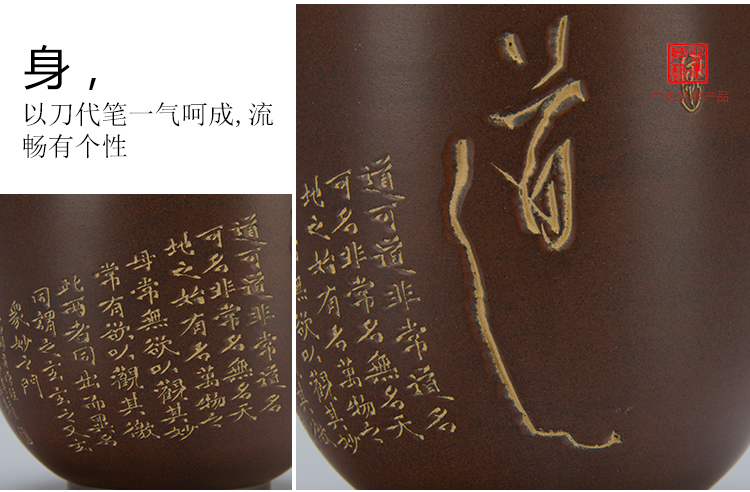 身，
以刀代笔一气呵成,流
畅有个性
道可道非常道名
可名非常名無名天
地之始有名萬物之
母常無欲以觀其妙
常有欲以觀其徼
此两者同出而異名
同謂之玄玄之又玄
衆妙之門
道
道可道非常道名
可名非常名無名天
地之始有名萬物之
無欲以觀其妙